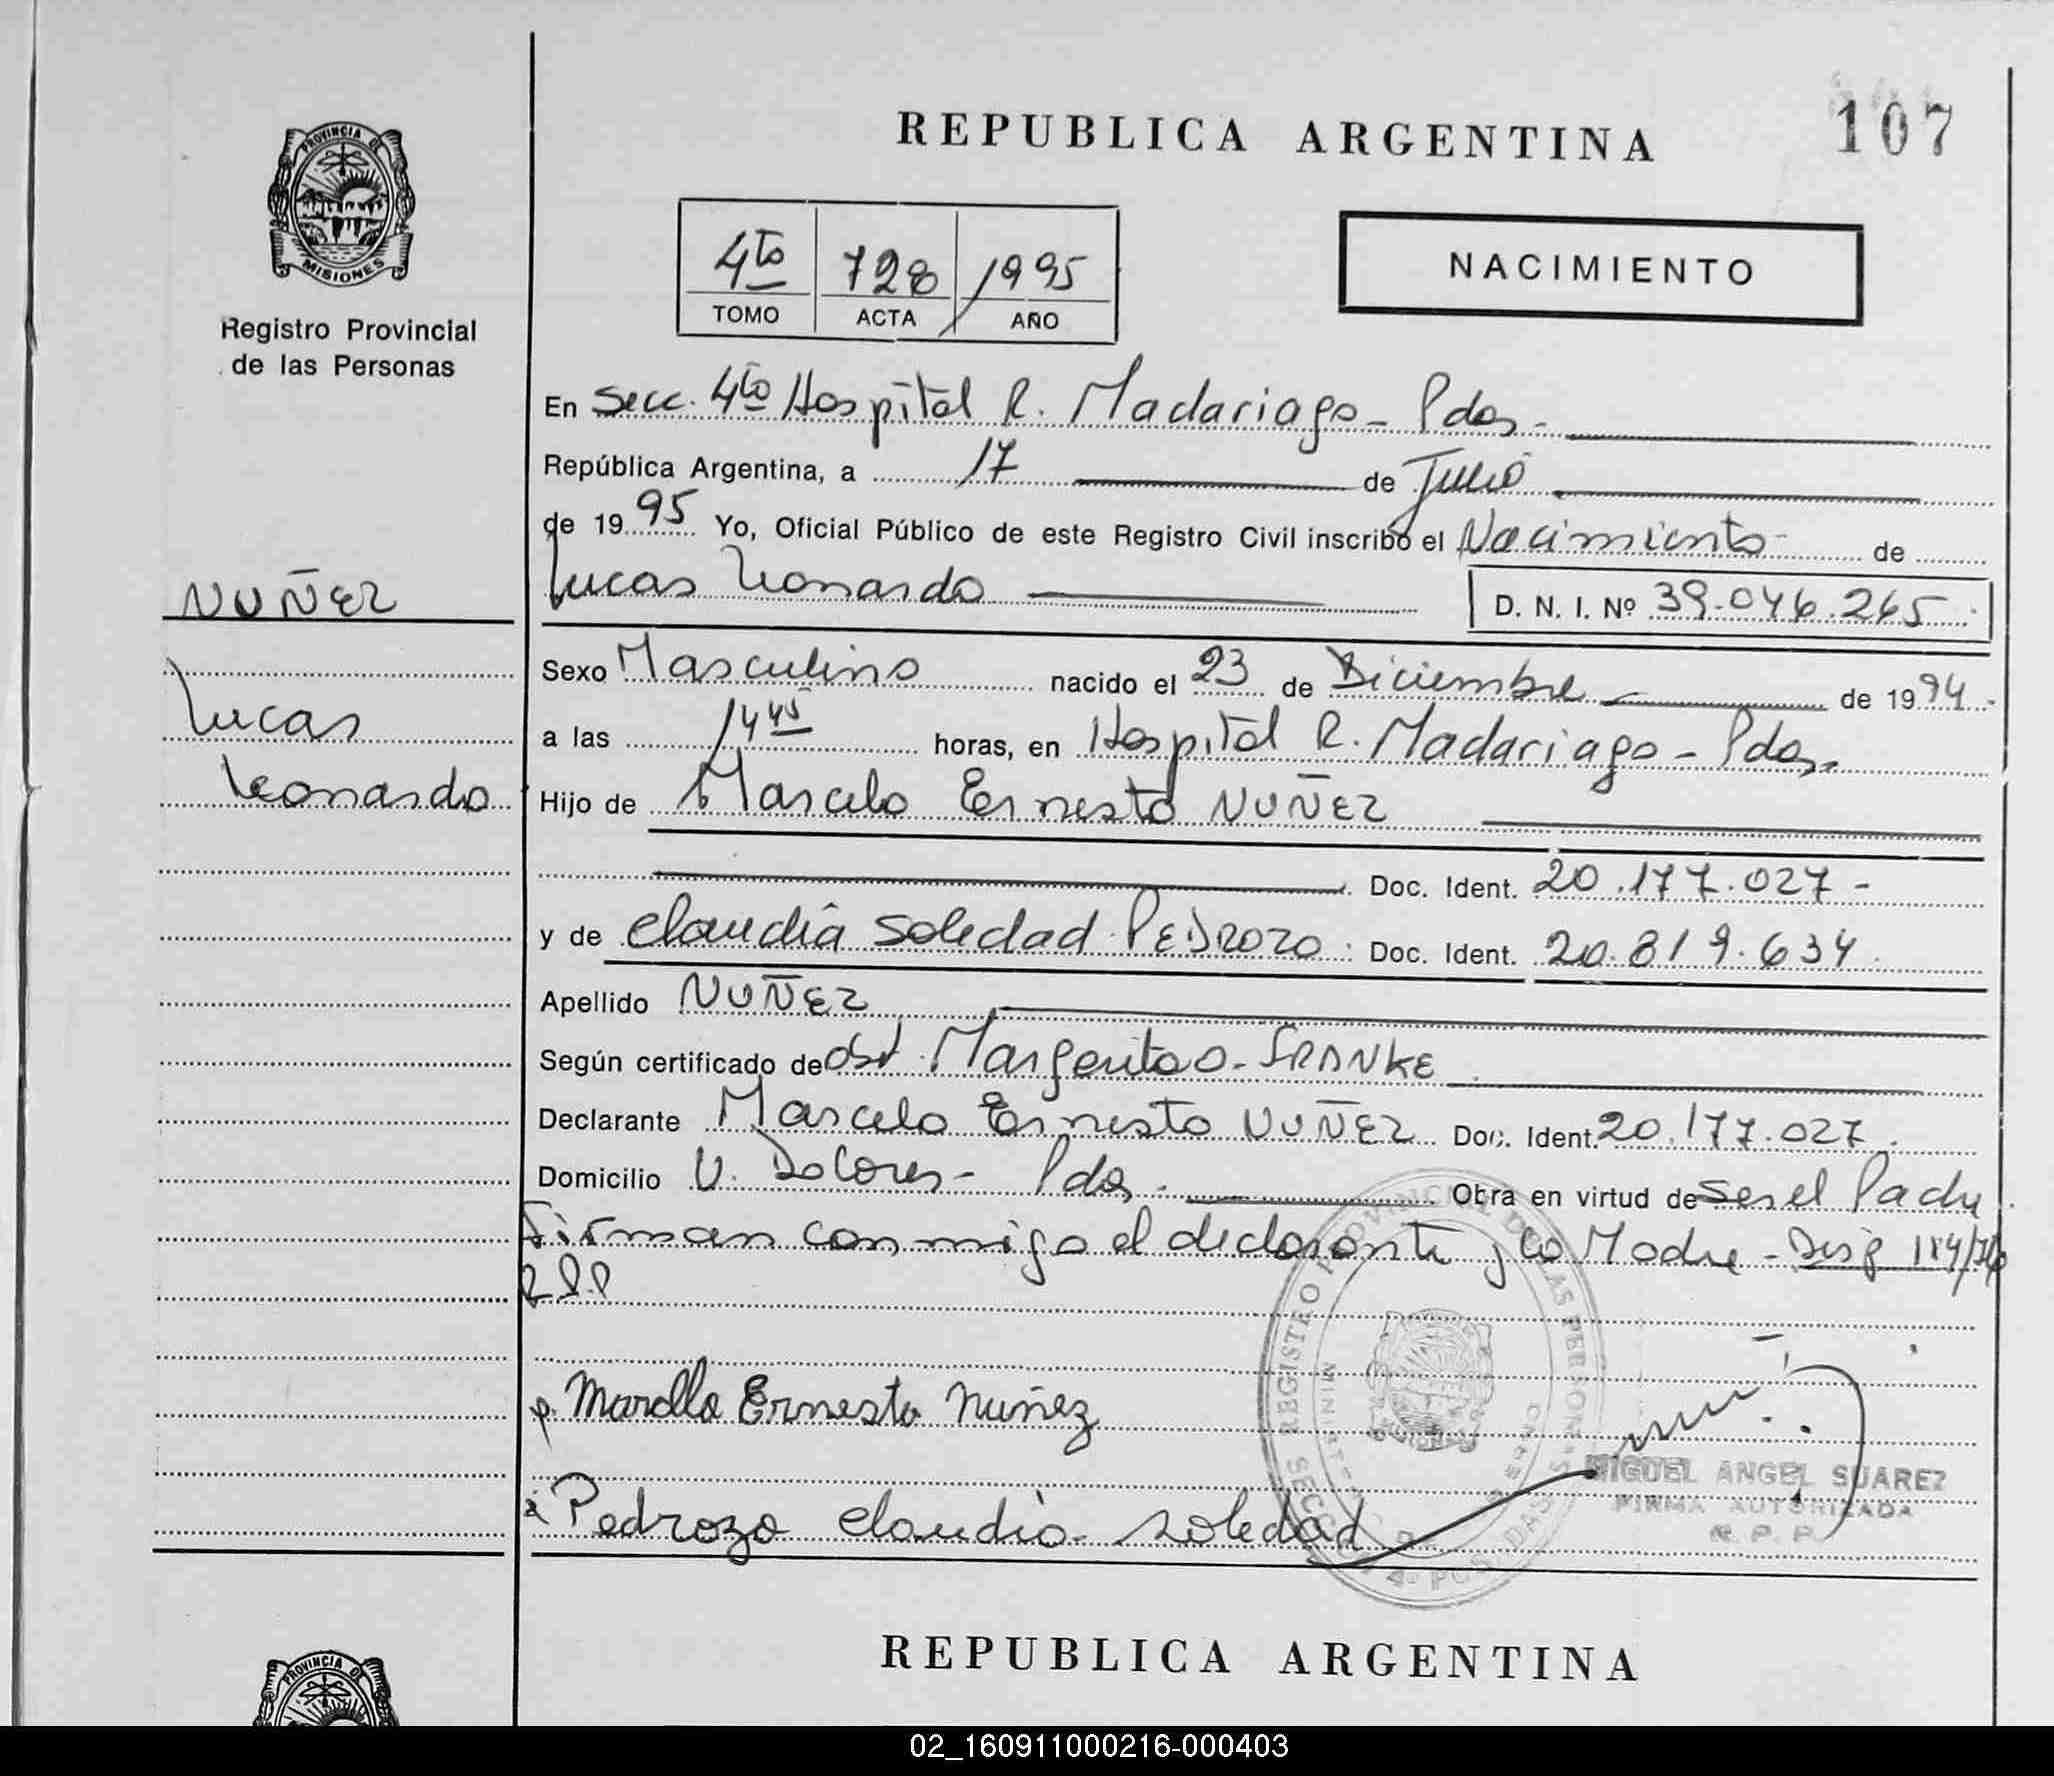 REPUBLICA ARGENTINA
107
PROVINCIA DE
MISIONES
Registro Provincial
de las Personas
4to 728 1995
TOMO ACTA AÑO
NACIMIENTO
En Secc. 4to Hospital R. Madariaga - Pdas -
República Argentina, a 17 de Julio
de 1995 Yo, Oficial Público de este Registro Civil inscribo el Nacimiento de
Lucas Leonardo D. N. I. Nº 39.046.265
NUÑEZ
Lucas
Leonardo
Sexo Masculino nacido el 23 de Diciembre de 1994 -
a las 14 45 horas, en Hospital R. Madariaga - Pdas.
Hijo de Marcelo Ernesto NUÑEZ
Doc. Ident. 20.177.027 -
y de Claudia Soledad PEDROZO Doc. Ident. 20.819.634
Apellido NUÑEZ
Según certificado de Obst. Margarita O. FRANKE
Declarante Marcelo Ernesto NUÑEZ Doc. Ident. 20.177.027.
Domicilio V. Dolores - Pdas. Obra en virtud de ser el Padre
Firman conmigo el declarante y la Madre - Disp 184/76
R.P.P
p. Marcelo Ernesto Nuñez
Pedrozo Claudia Soledad
REGISTRO PROVINCIAL DE LAS PERSONAS
MIGUEL ANGEL SUAREZ
FIRMA AUTORIZADA
R. P. P.
REPUBLICA ARGENTINA
PROVINCIA DE
02_160911000216-000403